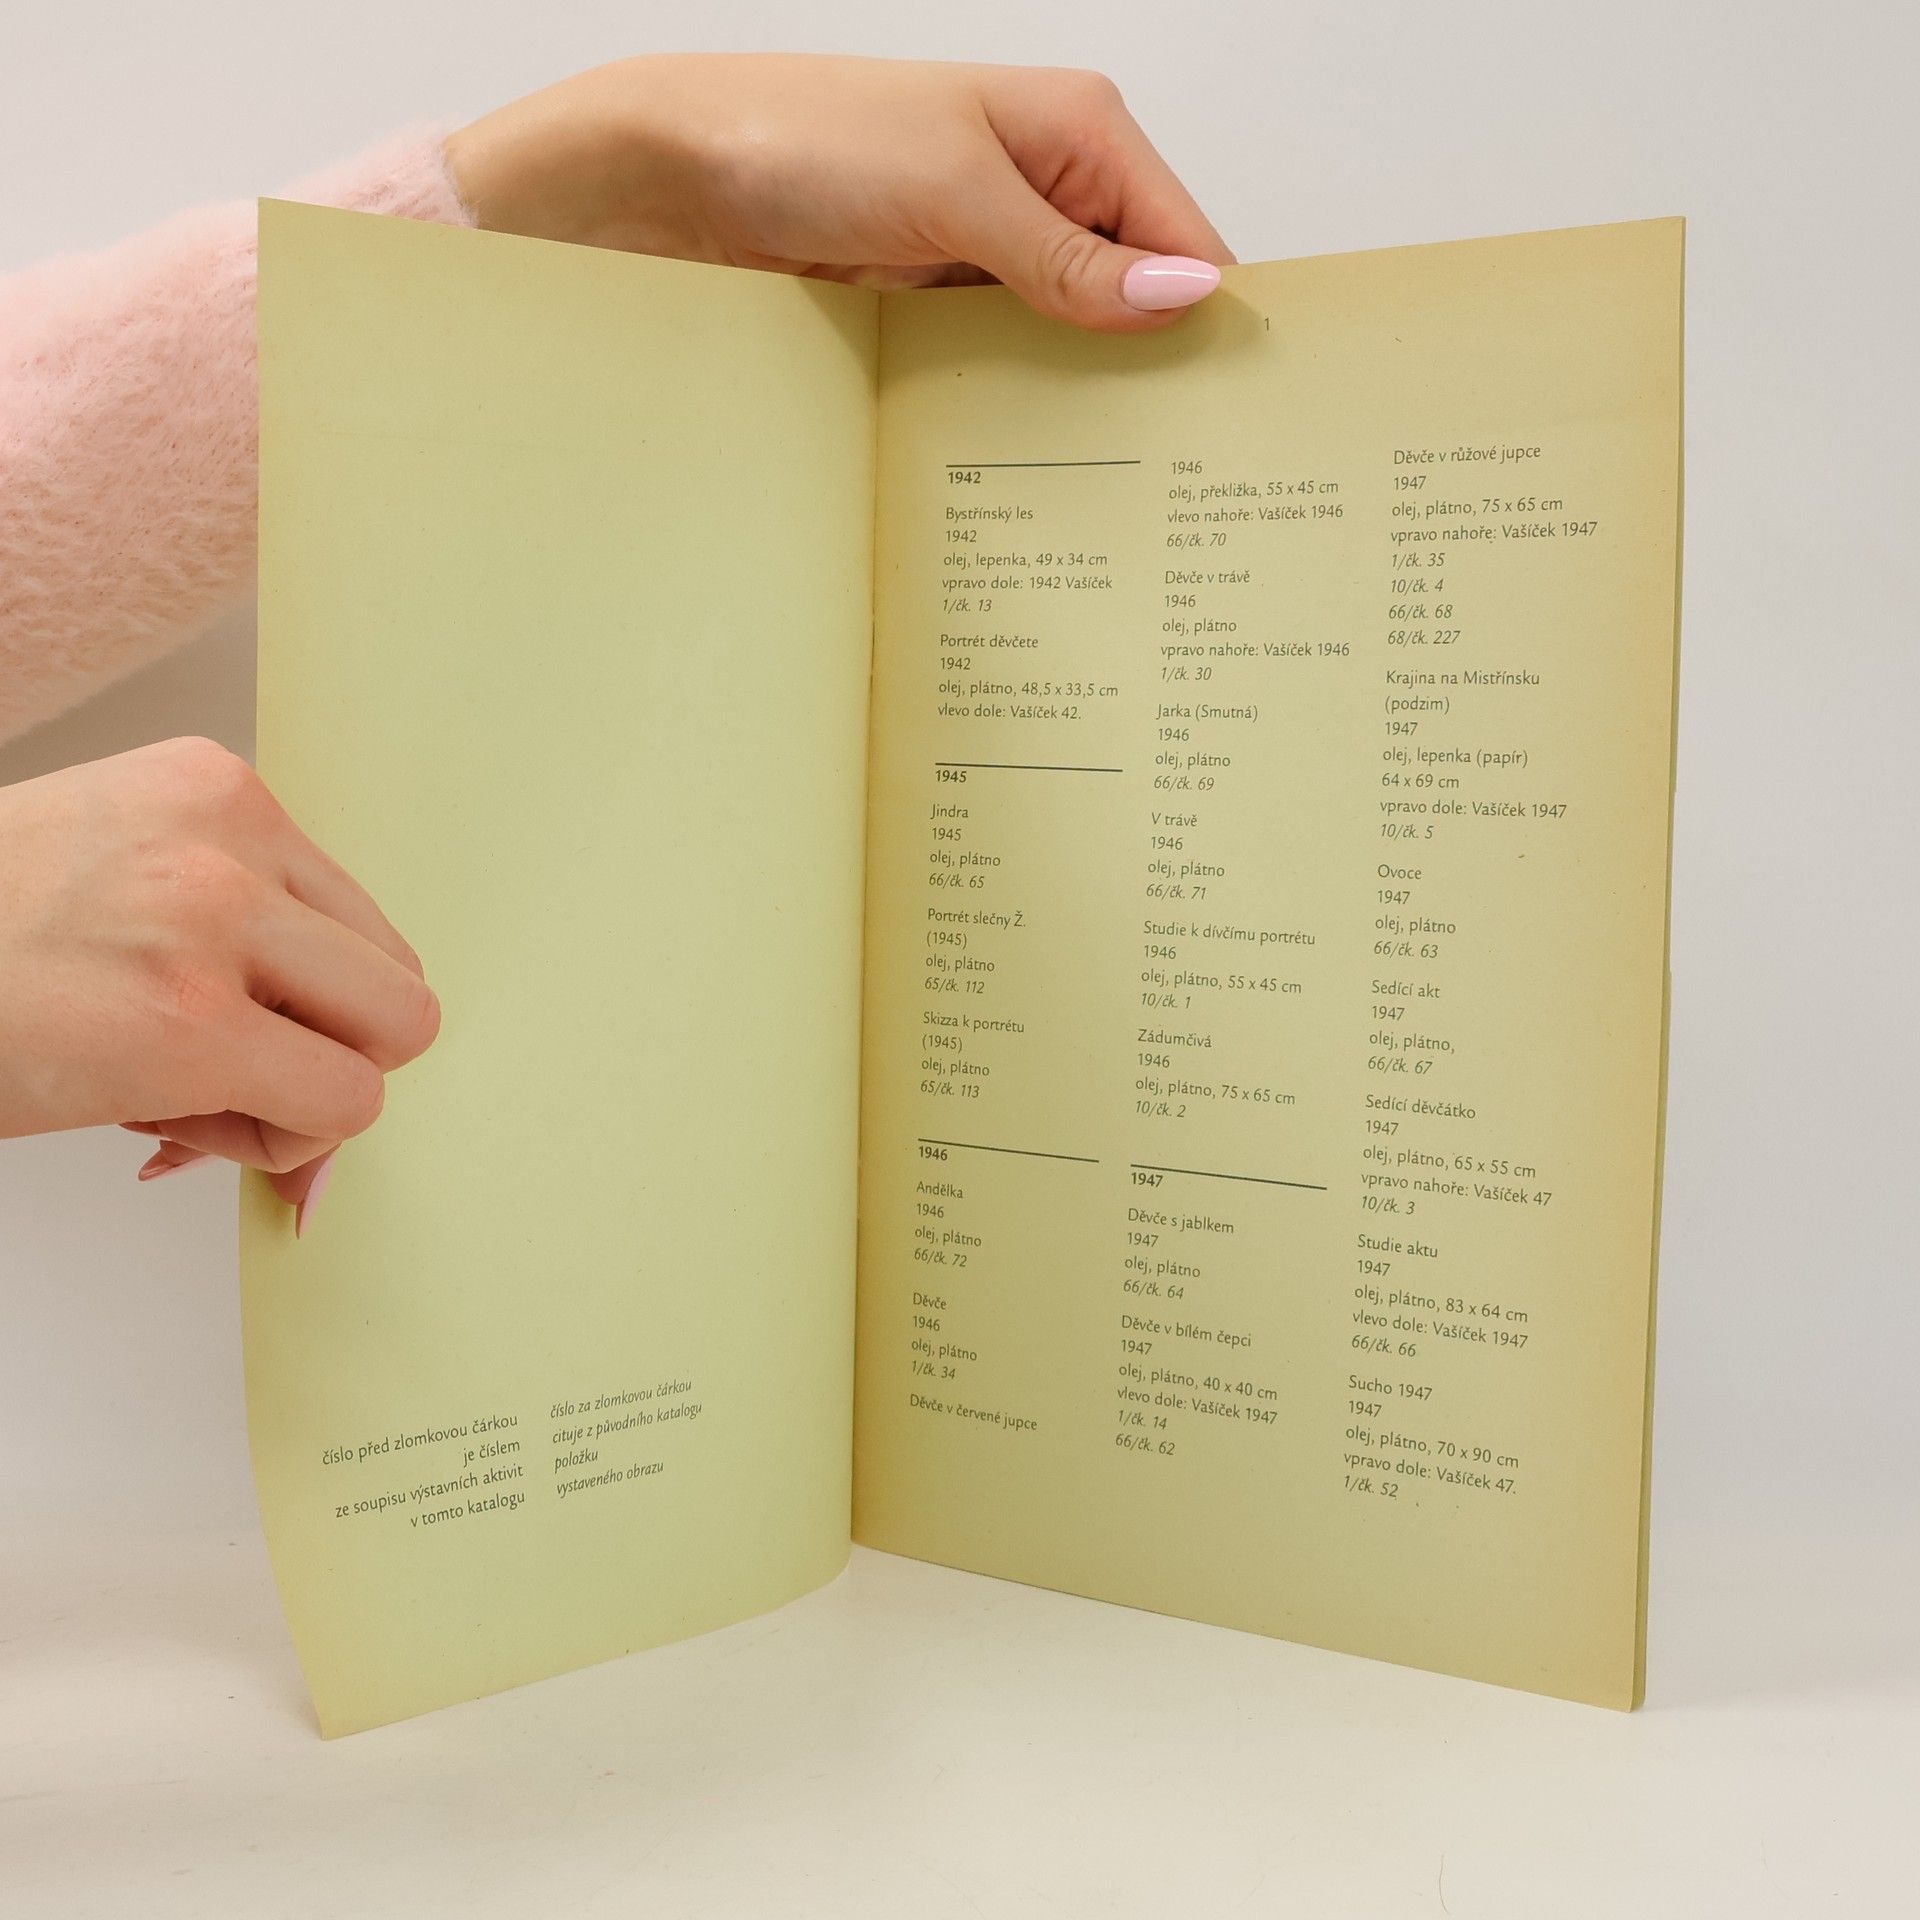 číslo před zlomkovou čárkou
je číslem
ze soupisu výstavních aktivit
v tomto katalogu
číslo za zlomkovou čárkou
cituje z původního katalogu
položku
vystaveného obrazu
1
1942
Bystřínský les
1942
olej, lepenka, 49 x 34 cm
vpravo dole: 1942 Vašíček
1/čk. 13
Portrét děvčete
1942
olej, plátno, 48,5 x 33,5 cm
vlevo dole: Vašíček 42.
1945
Jindra
1945
olej, plátno
66/čk. 65
Portrét slečny Ž.
(1945)
olej, plátno
65/čk. 112
Skizza k portrétu
(1945)
olej, plátno
65/čk. 113
1946
Andělka
1946
olej, plátno
66/čk. 72
Děvče
1946
olej, plátno
1/čk. 34
Děvče v červené jupce
1946
olej, překližka, 55 x 45 cm
vlevo nahoře: Vašíček 1946
66/čk. 70
Děvče v trávě
1946
olej, plátno
vpravo nahoře: Vašíček 1946
1/čk. 30
Jarka (Smutná)
1946
olej, plátno
66/čk. 69
V trávě
1946
olej, plátno
66/čk. 71
Studie k dívčímu portrétu
1946
olej, plátno, 55 x 45 cm
10/čk. 1
Zádumčivá
1946
olej, plátno, 75 x 65 cm
10/čk. 2
1947
Děvče s jablkem
1947
olej, plátno
66/čk. 64
Děvče v bílém čepci
1947
olej, plátno, 40 x 40 cm
vlevo dole: Vašíček 1947
1/čk. 14
66/čk. 62
Děvče v růžové jupce
1947
olej, plátno, 75 x 65 cm
vpravo nahoře: Vašíček 1947
1/čk. 35
10/čk. 4
66/čk. 68
68/čk. 227
Krajina na Mistřínsku
(podzim)
1947
olej, lepenka (papír)
64 x 69 cm
vpravo dole: Vašíček 1947
10/čk. 5
Ovoce
1947
olej, plátno
66/čk. 63
Sedící akt
1947
olej, plátno,
66/čk. 67
Sedící děvčátko
1947
olej, plátno, 65 x 55 cm
vpravo nahoře: Vašíček 47
10/čk. 3
Studie aktu
1947
olej, plátno, 83 x 64 cm
vlevo dole: Vašíček 1947
66/čk. 66
Sucho 1947
1947
olej, plátno, 70 x 90 cm
vpravo dole: Vašíček 47.
1/čk. 52